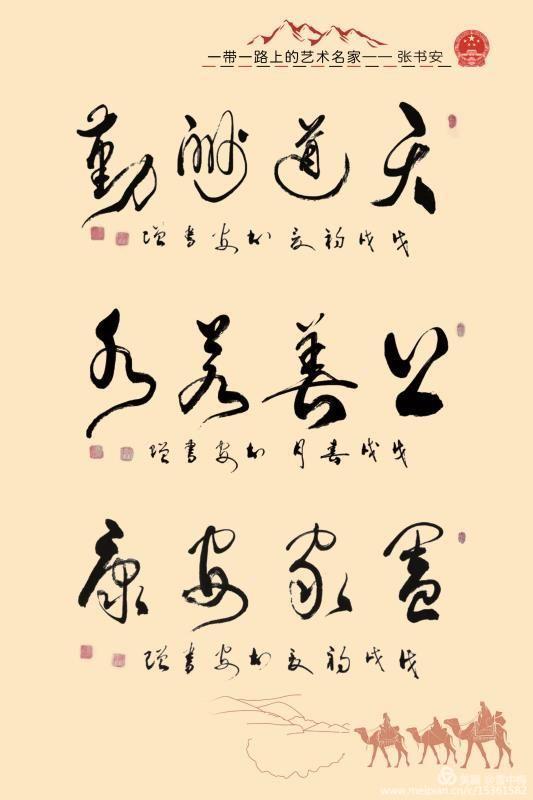 一带一路上的艺术名家—— 张书安
天道酬勤
戊戌初夏书安書赠
上善若水
戊戌春月书安書赠
阖家安康
戊戌初夏书安書赠
美篇 @雪中梅
www.meipian.cn/c/15361582